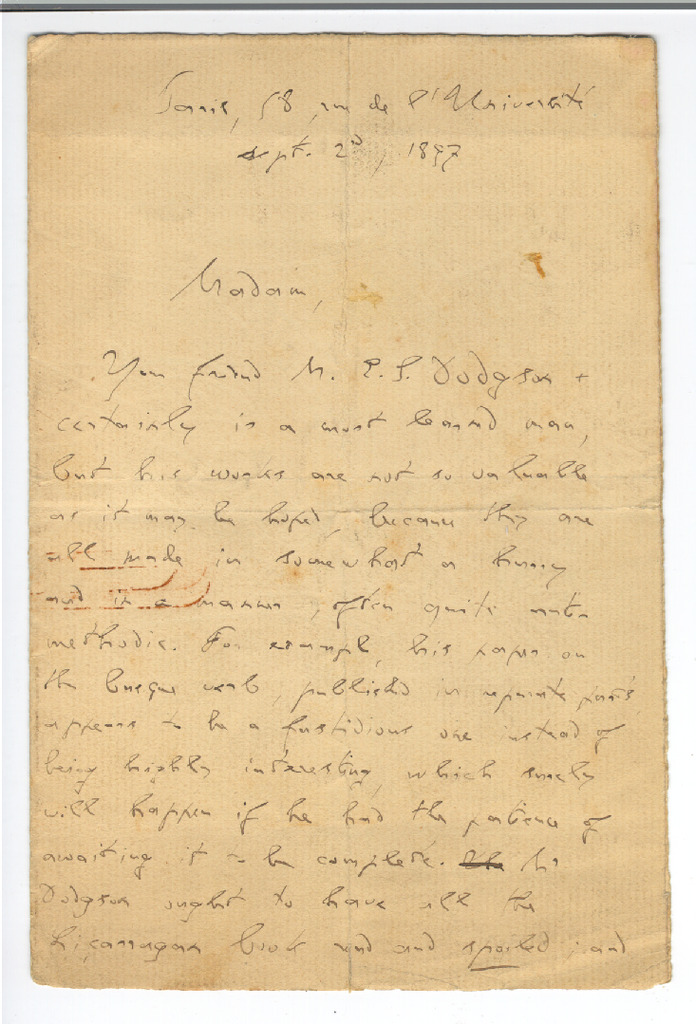 Paris, 58, rue de l'Université
sept. 2nd, 1897
Madam,
Your friend M. E. S. Dodgson
certainly is a most learned man,
but his works are not so valuable
as it may be hoped, because they are
all made in somewhat a hurry
and in a manner, often quite anti-
methodic. For example, his paper on
the basque verb, published in separate parts,
appears to be a fastidious one instead of
being highly interesting, which surely
will happen if he had the patience of
awaiting it to be complete. Mr
Dodgson ought to have all the
Liçarragan book read and spoiled ; and